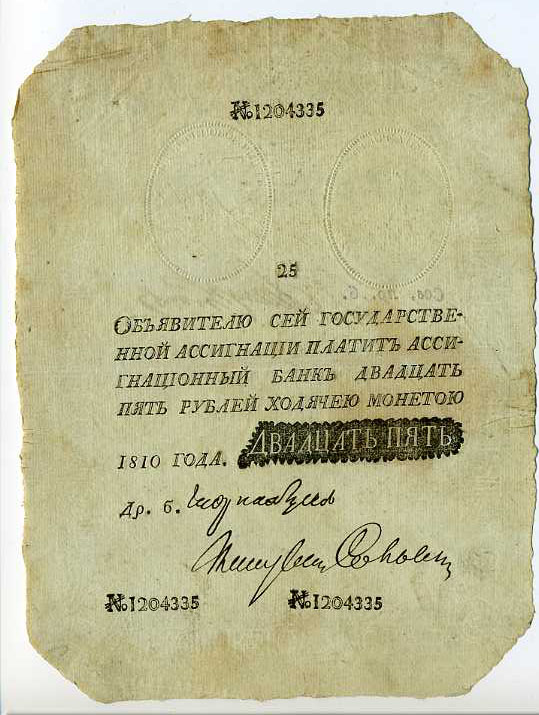 №1204335
25
ОБЪЯВИТЕЛЮ СЕЙ ГОСУДАРСТВЕ-
ННОЙ АССИГНАЦIИ ПЛАТИТЪ АССИ-
ГНАЦIОННЫЙ БАНКЪ ДВАДЦАТЬ
ПЯТЬ РУБЛЕЙ ХОДЯЧЕЮ МОНЕТОЮ
1810 ГОДА. ДВАДЦАТЬ ПЯТЬ
Др. б.
№1204335 №1204335